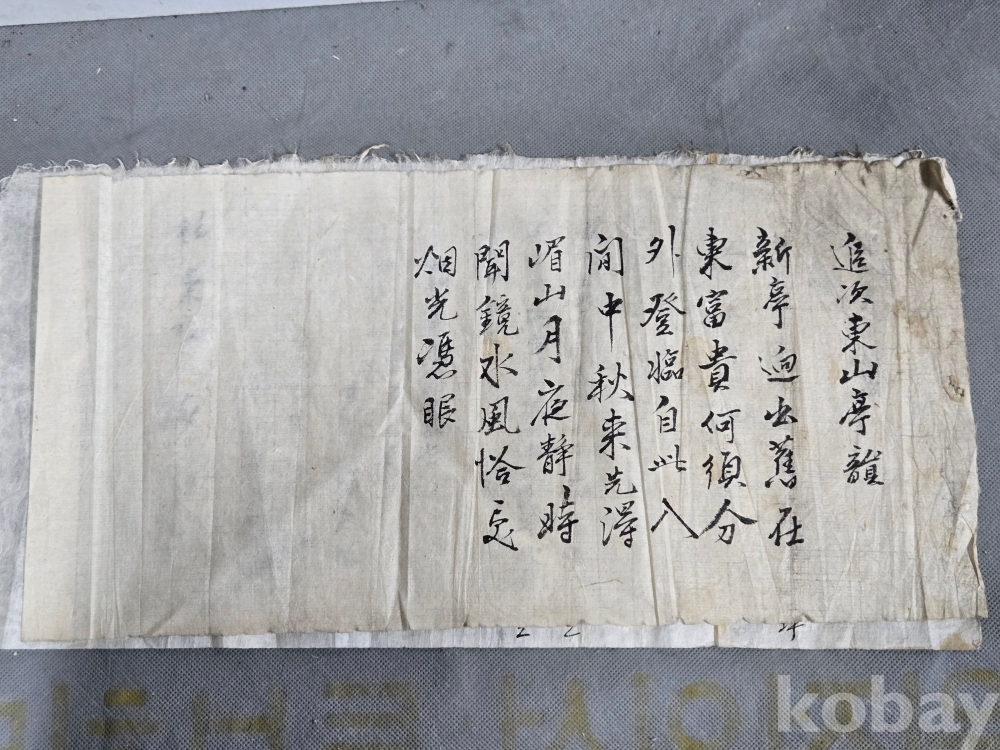 追次東山亭韻
新亭迥出舊在
東富貴何須分
外登臨自此入
閒中秋来先得
嵋山月夜静時
聞鏡水風恰受
烟光憑眼
kobay